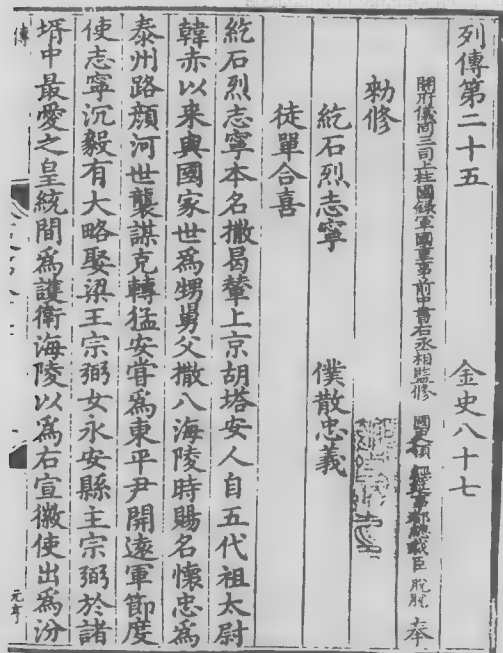 列傳第二十五　金史八十七
開府儀同三司上柱國錄軍國重事前中書右丞相監修國史領經筵事都總裁臣脫脫奉
勅修
紇石烈志寧　僕散忠義
徒單合喜
紇石烈志寧本名撒曷輦上京胡塔安人自五代祖太尉
韓赤以來與國家世爲甥舅父撒八海陵時賜名懷忠爲
泰州路顏河世襲謀克轉猛安嘗爲東平尹開遠軍節度
使志寧沉毅有大略娶梁王宗弼女永安縣主宗弼於諸
壻中最愛之皇統間爲護衛海陵以爲右宣徽使出爲汾
傳
元亨